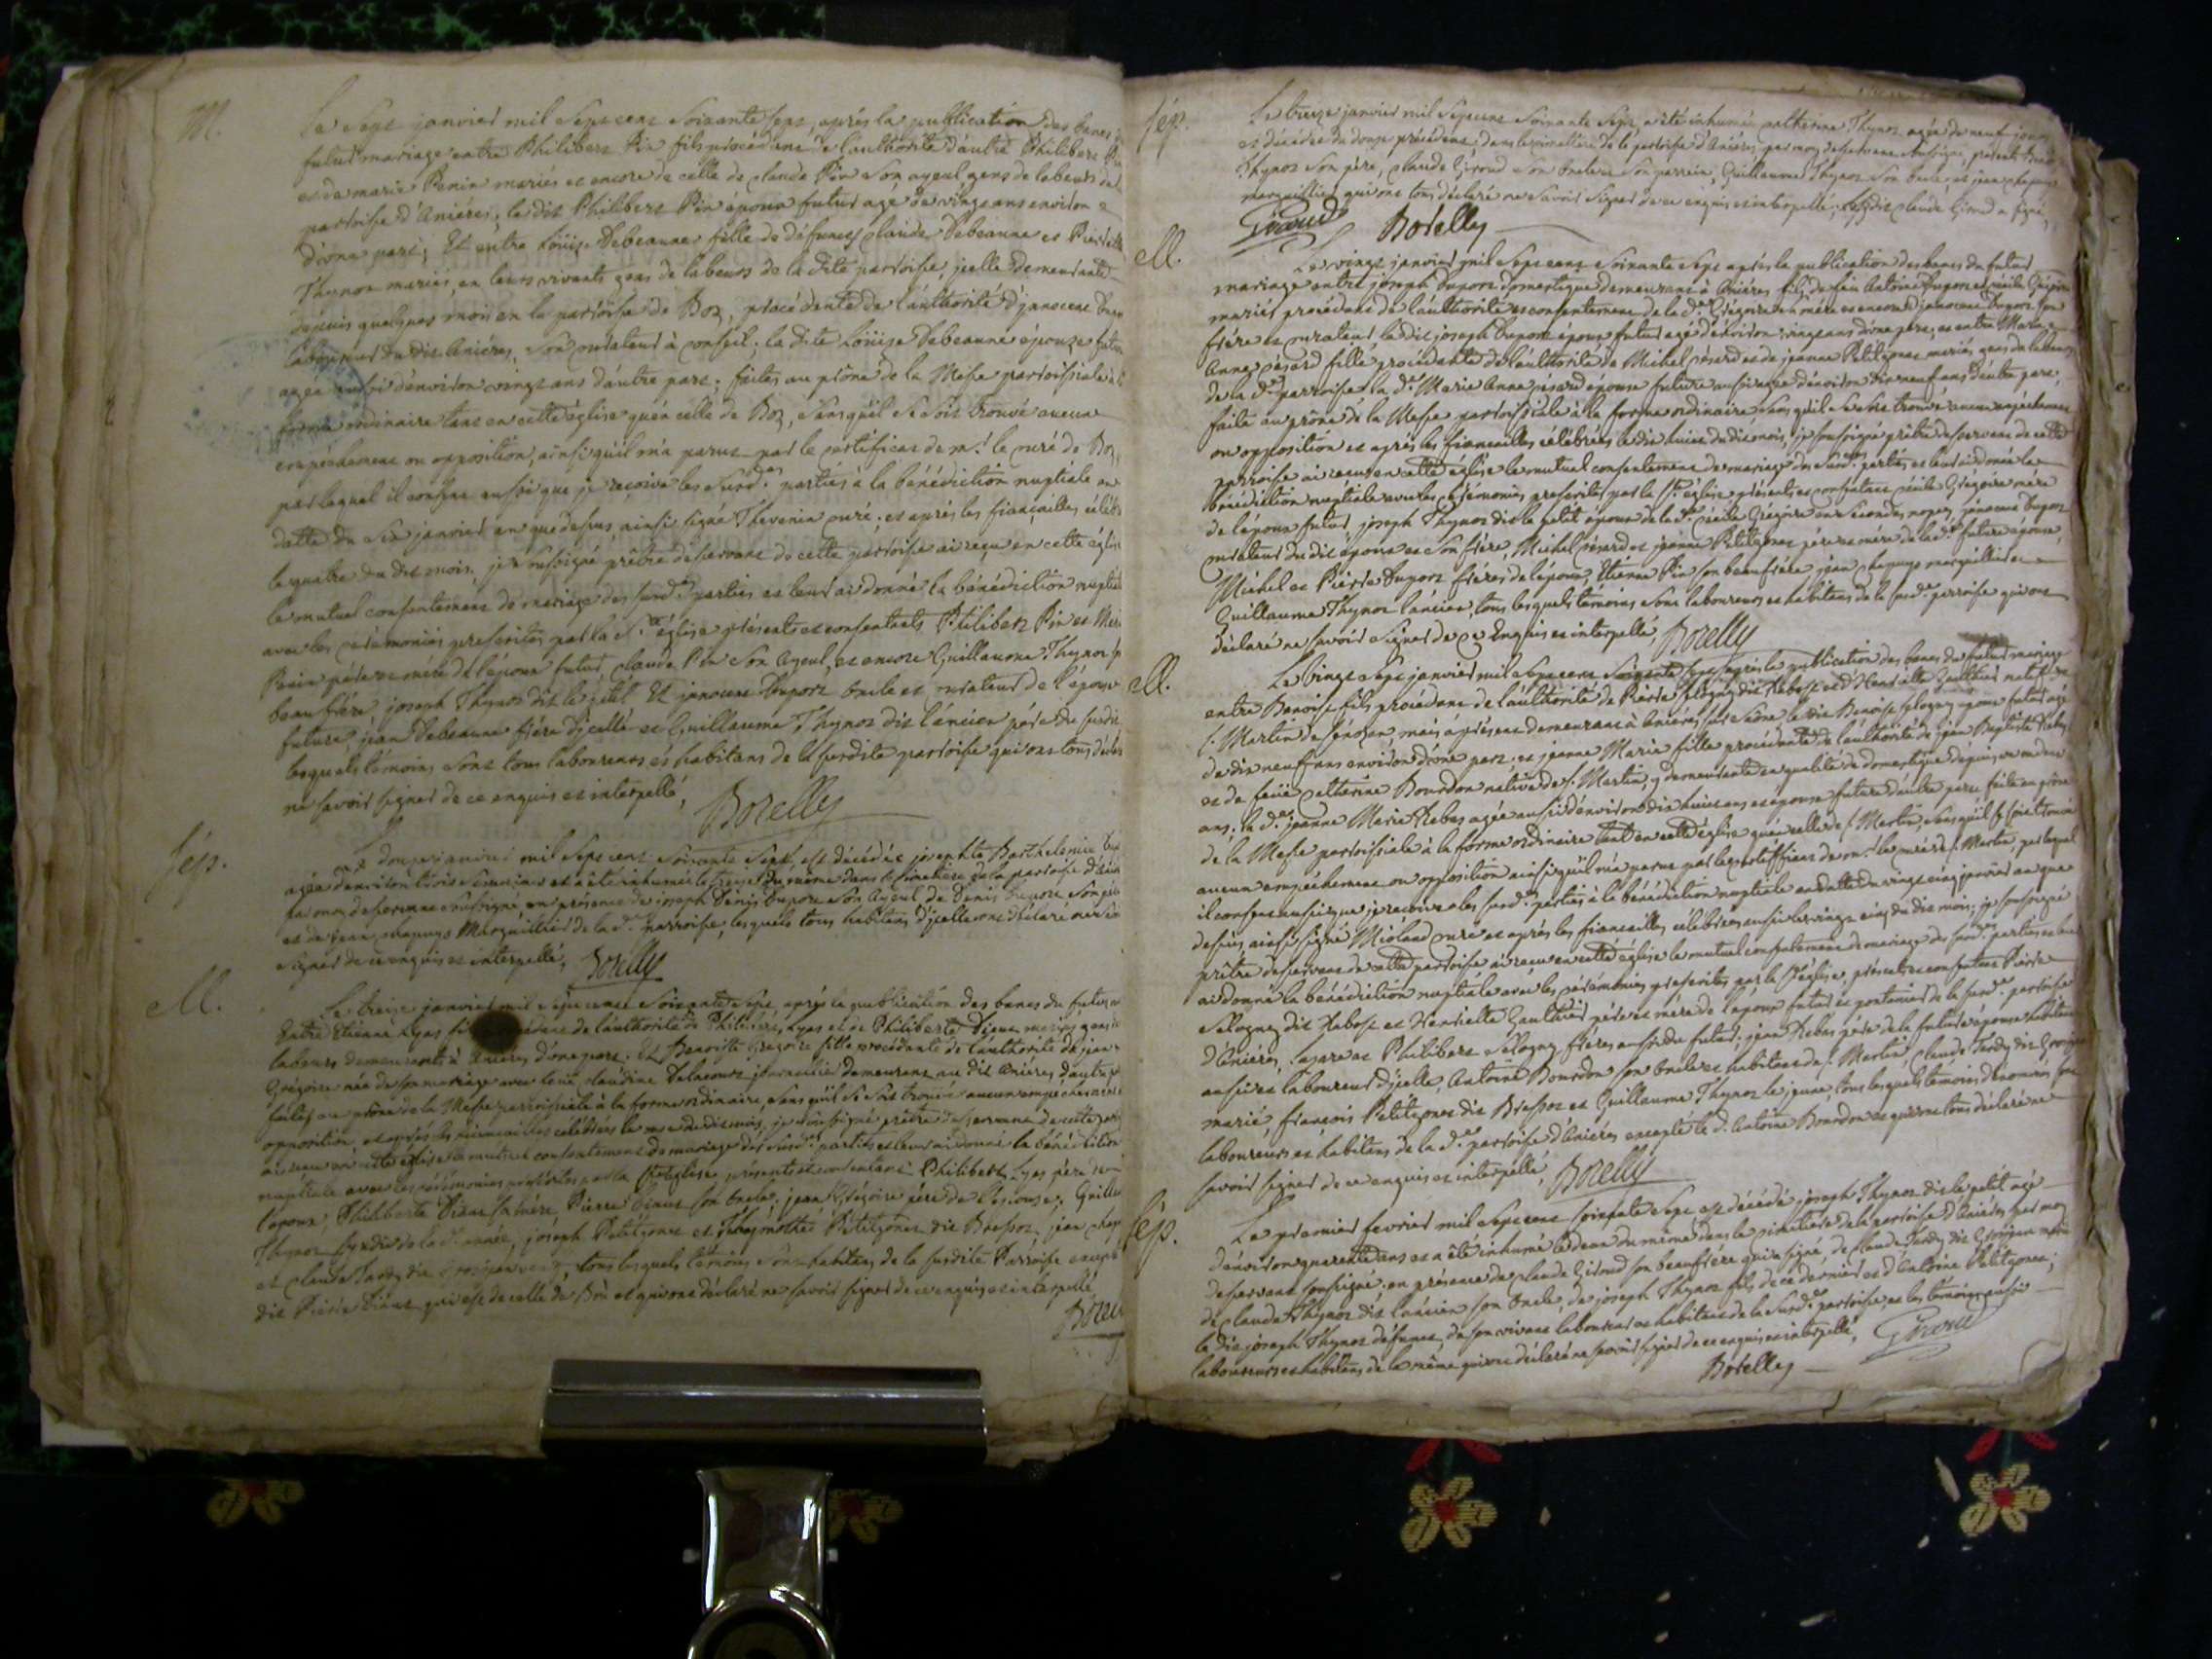 M.
Le sept janvier mil sept cent soixante sept, après la publication des bancs
futur mariage entre Philibert Pin fils procédant de l'authorité d'autre Philibert Pin
et de marie Renin mariés et encore de celle de claude Pin son ayeul gens de labeurs de
paroisse d'Aniéres; le dit Philibert Pin epoux futur agé de vingt ans environ
d'une part; Et entre Loüise Debeaune fille de défunts claude Debeaune et Pierrette
Thynon mariés, en leurs vivants gens de labeurs de la dite paroisse, icelle demeurante
depuis quelques mois en la paroisse de Boz, procédente de l'authorité d'jnnocent Dupor
laboureur du dit Aniéres, son curateur à conseil; la dite Loüise Debeaune épouse future
agée aussi d'environ vingt ans d'autre part; faites au prône de la Messe paroissiale à la
forme ordinaire tant en cette église qu'en celle de Boz, sans qu'il se soit trouvé aucun
empêchement ou opposition, ainsi qu'il m'a parut par le certificat de mr. le curé de Boz,
par lequel il conste aussi que je reçoive les susd. parties à la bénédiction nuptiale en
datte du six janvier en que dessus, ainsi signé Thevenin curé; et après les fiançailles célébr
le quatre du dit mois, je soussigné prêtre desservant de cette paroisse ai reçu en cette église
le mutuel consentement de mariage des susd. parties et leur ai donné la bénédiction nuptiale
avec les cérémonies prescrites par la Ste. église présents et consentants Philibert Pin et Marie
Renin père et mère de l'époux futur, claude Pin son ayeul, et encore Guillaume Thynoz
beaufrère, joseph Thynoz dit le petit Et jnnocent Dupor oncle et curateur de l'épouse
future, jean Debeaune frère d'jcelle et Guillaume Thynoz dit l'ancien père du susdit
lesquels témoins sont tous laboureurs et habitans de la susdite paroisse qui ont tous déclaré
ne savoir signer de ce enquis et interpellé, Borelly
sép.
Le douze janvier mil sept cent soixante sept, est décédée josephte Barthelemie Dup
agée d'environ trois semaines et a été inhumée le treize du même dans le cimetière de la paroisse d'Anié
par moy desservant soussigné en présence de joseph Denis Dupors son ayeul de Denis Dupors son père
et de jean chapuys Marguillier de la de. parroisse, lesquels tous habitans d'jcelle ont déclaré ne savoir
signer de ce enquis et interpellé, Borelly
M.
Le treize janvier mil sept cent soixante sept, après la publication des bancs du futur
Entre Etienne Lyas de l'authorité de Philibert Lyas et de Philiberte Diane mariés gens de
labeurs demeurants à Aniéres d'une part. Et Benoitte Gregoire fille procédante de l'authorité de jean
Grégoire née de son mariage avec feue claudine Delacour journalier demeurant au dit Aniéres d'autre
faites au prône de la Messe parroissiale à la forme ordinaire, sans qu'il se soit trouvé aucun empêchement
opposition, et après les fiançailles célébrées le du dit mois, je soussigné prêtre desservant de cette par
ai reçu en cette église le mutuel consentement de mariage des susd. parties et leur ai donné la bénédiction
nuptiale avec les cérémonies prescrites par la Ste église, présents et consentans Philibert Lyas père
l'époux, Philiberte Diane sa mère, Pierre Diane son oncle, jean Grégoire père de l'épouse, Guillaume
Thynoz Syndic de la de. année, joseph Petitjones et Petitjones dit Bressoz, jean chap
et Claude Tardy dit Grosjean, tous lesquels témoins sont habitans de la susdite Parroisse excepté
dit Pierre Diane qui est de celle de Boz et qui ont déclaré ne savoir signer de ce enquis et interpellé
Borelly
sép.
Le treize janvier mil sept cent soixante sept, a été inhumée catherine Thynoz agée de neuf jours
et décédée du douze précédent dans le cimetière de la paroisse d'Aniéres par moy desservant soussigné, présents
Thynoz son père, claude Giroud son oncle et son parrein, Guillaume Thynoz son oncle, et jean chapuys
marguillier qui ont tous déclaré ne savoir signer de ce enquis et interpellé, le susdit claude Giroud a signé,
Giraud Borelly
M.
Le vingt janvier mil sept cent soixante sept après la publication des bancs du futur
mariage entre joseph Dupors domestique demeurant à Aniéres fils de feu Antoine Dupors et cécile Grégoire
mariés procédant de l'authorité et consentement de la de. Grégoire sa mère et encore d'jnnocent Dupors son
frère et curateur, le dit joseph Dupors époux futur agé d'environ vingt ans d'une part, et entre Marie
Anne césard fille procédante de l'authorité de Michel césard et de jeanne Petitjones mariés gens de labeurs
de la de. parroisse, la de. Marie Anne césard epouse future aussi agée d'environ dix neuf ans d'autre part,
faite au prône de la Messe paroissiale à la forme ordinaire sans qu'il se soit trouvé aucun empêchement
ou opposition et après les fiançailles célébrées le dix huit du dit mois, je soussigné prêtre desservant de cette
parroisse ai reçu en cette église le mutuel consentement de mariage des susd. parties et leur ai donné la
bénédiction nuptiale avec les cérémonies prescrites par la Ste. église présents et consentans cécile Grégoire mère
de l'époux futur, joseph Thynoz dit le petit époux de la de. cécile Grégoire en secondes noces, jnnocent Dupors
curateur du dit époux et son frère, Michel césard et jeanne Petitjones père et mère de la de. future épouse,
Michel et Pierre Dupors frères de l'époux, Etienne Pin son beaufrère jean chapuys marguillier et
Guillaume Thynoz l'ancien, tous lesquels témoins sont laboureurs et habitans de la susd. parroisse qui ont
déclaré ne savoir signer de ce Enquis et interpellé, Borelly
M.
Le vingt sept janvier mil sept cent soixante sept après la publication des bancs du futur mariage
entre Benoist fils procédant de l'authorité de Pierre Sellogny dit Rebost et d'Henriette Gaultier natif de
St. Martin de Senozan mais à présent demeurant à Aniéres sur Saône le dit Benoist Sellogny époux futur agé
de dix neuf ans environ d'une part, et jeanne Marie fille procédante de l'authorité de jean Baptiste Rebes
et de feüe catherine Bourdon native de St. Martin, y demeurante en qualité de domestique depuis
ans, la de. jeanne Marie Rebes agée aussi d'environ dix huit ans et épouse future d'autre part faite au prône
de la Messe paroissiale à la forme ordinaire tant en cette église qu'en celle de St. Martin, sans qu'il se soit trouvé
aucun empêchement ou opposition ainsi qu'il m'a parut par le certificat de mr. le curé de St. Martin, par lequel
il conste aussi que je reçoive les susd. parties à la bénédiction nuptiale en datte du vingt cinq janvier an que
dessus, ainsi signé Mioland curé et après les fiançailles célébrées aussi le vingt cinq du dit mois; je soussigné
prêtre desservant de cette paroisse ai reçu en cette église le mutuel consentement de mariage des susd. parties et leur
ai donné la bénédiction nuptiale avec les cérémonies prescrites par la Ste église, présents et consentans Pierre
Sellogny dit Rebost et Henriette Gaultier père et mère de l'époux futur et de la susd. paroisse
d'Aniéres, Lazare et Philibert Sellogny frères aussi du futur; jean Rebes père de la future épouse habitant
aussi et laboureur d'jcelle, Antoine Bourdon son oncle et habitant de St. Martin, claude Tardy dit Grosjean
marié, françois Petitjones dit Bressoz et Guillaume Thynoz le jeune, tous lesquels témoins dénommés sont
laboureurs et habitans de la de. paroisse d'Aniéres excepté le d. Antoine Bourdon et qui ont tous déclaré ne
savoir signer de ce enquis et interpellé, Borelly
sép.
Le premier fevrier mil sept cent soixante sept est décédé joseph Thynoz dit le petit agé
d'environ quarente ans et a été inhumé le deux du même dans le cimetière de la paroisse d'Aniéres par moy
desservant soussigné, en présence de claude Giroud son beaufrère qui a signé, de claude Tardy dit Grosjean
de claude Thynoz dit l'ancien son oncle, de joseph Thynoz fils de ce dernier et d'Antoine Petitjones;
le dit joseph Thynoz défunt, de son vivant laboureur et habitant de la susd. paroisse, et les témoins aussi
laboureurs et habitans de la même qui ont déclaré ne savoir signer de ce enquis et interpellé, Giraud
Borelly